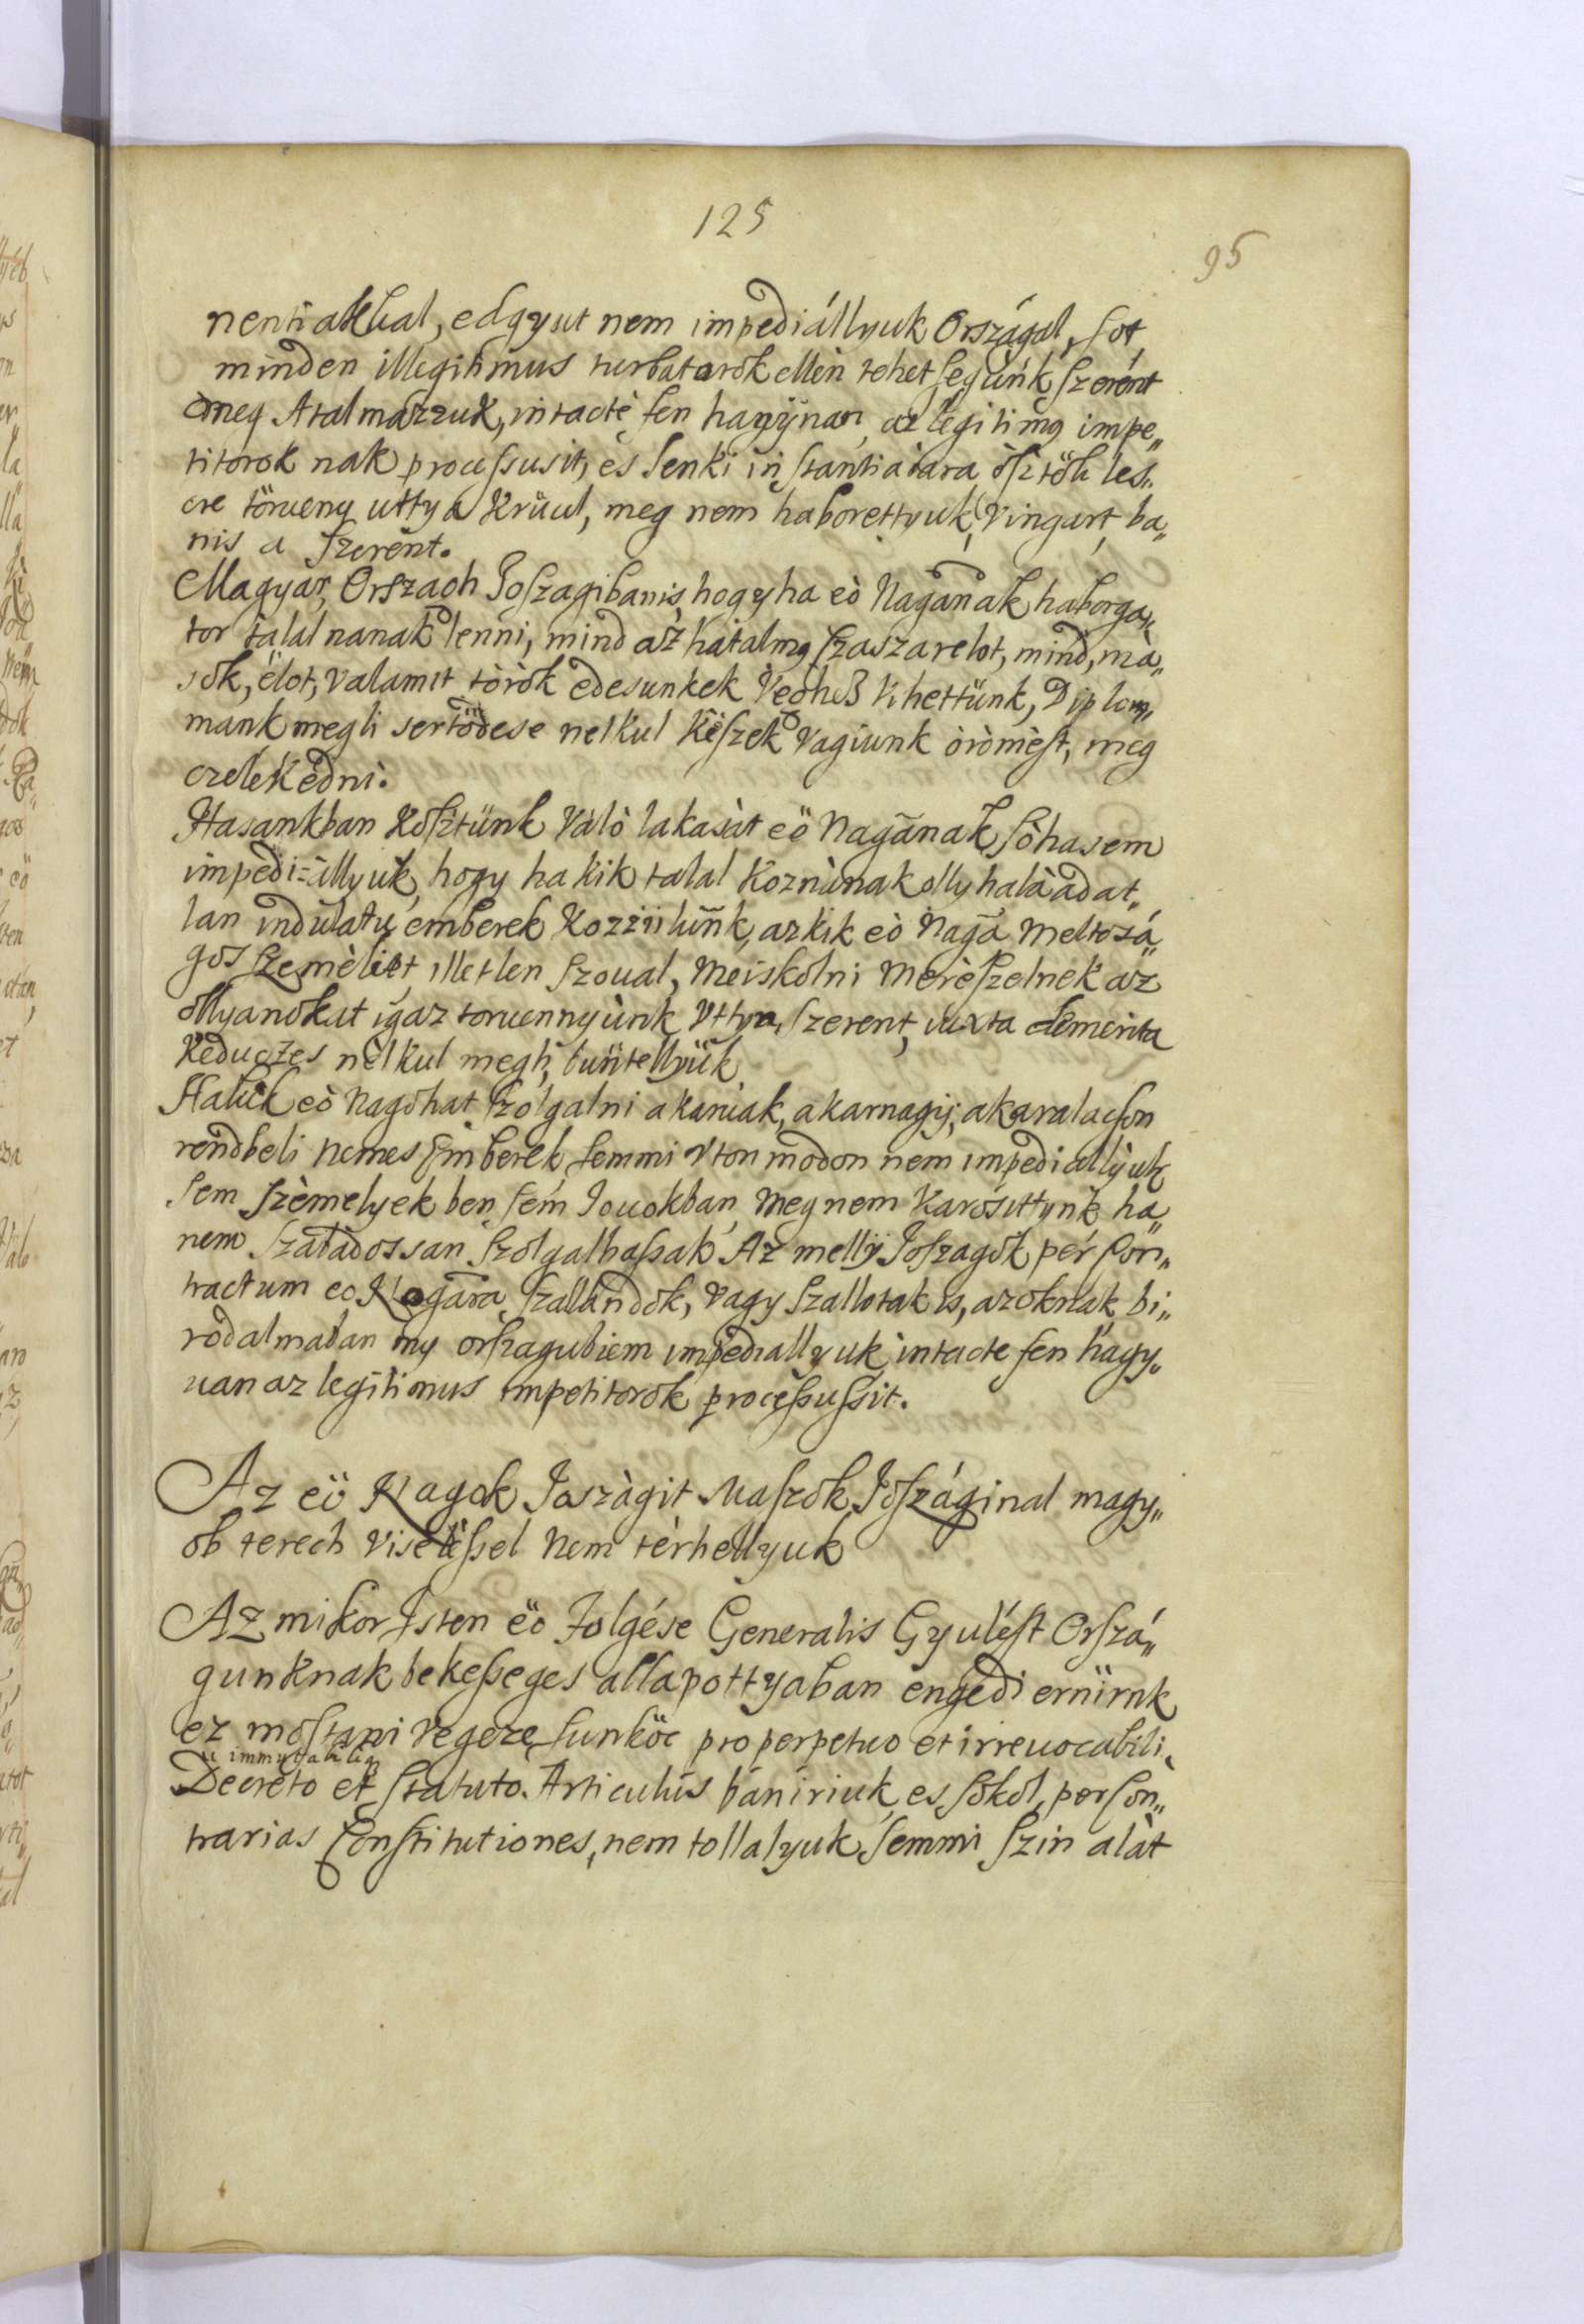 125
95
nentiakkal, edgyut nem impediállyuk Országal, sot
minden illegitimus turbatorok ellen tehetsegùnk szerént
meg Atalmazzuk, intactè fen hagÿnan, az legitimꝯ impe„
titorok nak processusit, es senki instantiaiara ösztöh les„
cre törueny uttya Krüul, meg nem haborettyuk, Vingart, ba„
nis a szerènt.
Magyar, Orszaoh Joszagibanis, hogyha eò Nagãnak haborga„
tor talalnanak lenni, mind az hatalmꝯ szaszarelot, mind, ma„
sok, ëlot, valamit török edesunkek Veghes Vihettünk, Diplom„
mank megh sertödese nelkul Kèszek vagiunk òròmèst, meg
czelekedni.
Hasankban Kösztünk Valò lakasàt eö Nagãnak sòhasem
impedi=állyuk, hogy ha kik talal Koznùnak olly halà adat„
lan indulatu emberek Kozzülünk, az kik eò Nagã meltosá„
gos szemèliet, illetlen szoual, meiskolni merèszelnek az
ollyanokat igaz toruennyùnk Vttya, szerent, iuxta demerita
Keduezes nèlkul megh, büntellyük
Hakik eò Nagõhat szolgalni akarnak, akar nagij, akar alacson
rendbeli nemes Emberek, semmi Vton modon nem impediallÿuk
sem szèmelyek ben sem Jouokban, meg nem Karosittynk, ha„
nem szabadossan szolgalhassak Az mellÿ Joszagok per Con„
tractum eo Nagãra szallandok, Vagy szallotak is, azoknak bi„
rodalmaban my orszagubiem impediallyuk, intacte fen hagy„
uan az legitimus impetitorok processussit.
Az eö Nagok Joszàgit Maszok Joszáginal magy„
ob terech Viselèssel Nem tèrhellyuk
Az mikor Isten eö Folgése Generalis Gyulést Orszá„
gunknak bekesseges allapottyaban engedi ernürnk
ez mostani Vegeze sunköt pro perpetuo et irreuocabili,
immutabiliq
Decreto et Statuto. Articulus bániriuk, es sokol, per Con„
trarias Constitutiones, nem tollalyuk semmi szin alàt